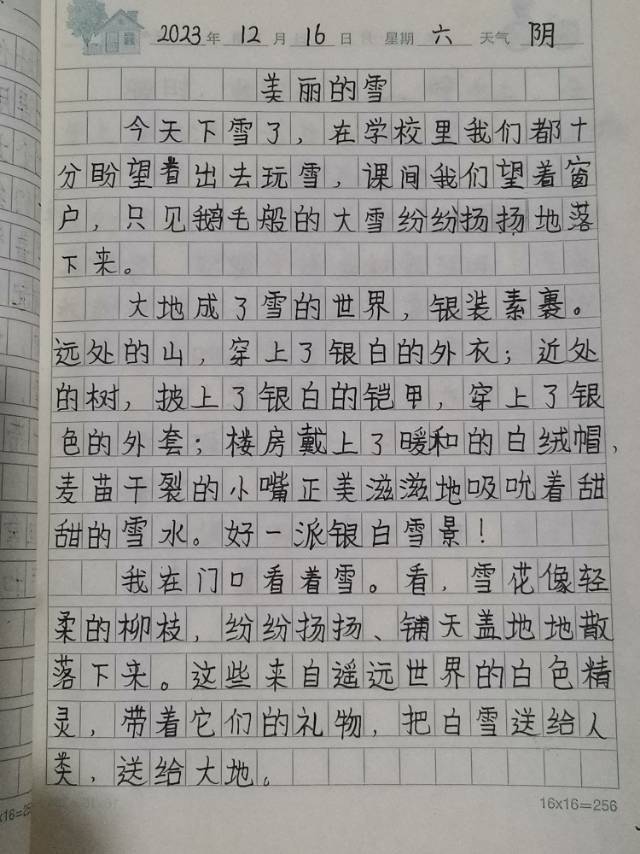 2023年 12月 16日 星期 六 天气 阴
美丽的雪
今天下雪了，在学校里我们都十
分盼望着出去玩雪，课间我们望着窗
户，只见鹅毛般的大雪纷纷扬扬地落
下来。
大地成了雪的世界，银装素裹。
远处的山，穿上了银白的外衣；近处
的树，披上了银白的铠甲，穿上了银
色的外套；楼房戴上了暖和的白绒帽，
麦苗干裂的小嘴正美滋滋地吸吮着甜
甜的雪水。好一派银白雪景！
我在门口看着雪。看，雪花像轻
柔的柳枝，纷纷扬扬、铺天盖地地散
落下来。这些来自遥远世界的白色精
灵，带着它们的礼物，把白雪送给人
类，送给大地。
16x16=256